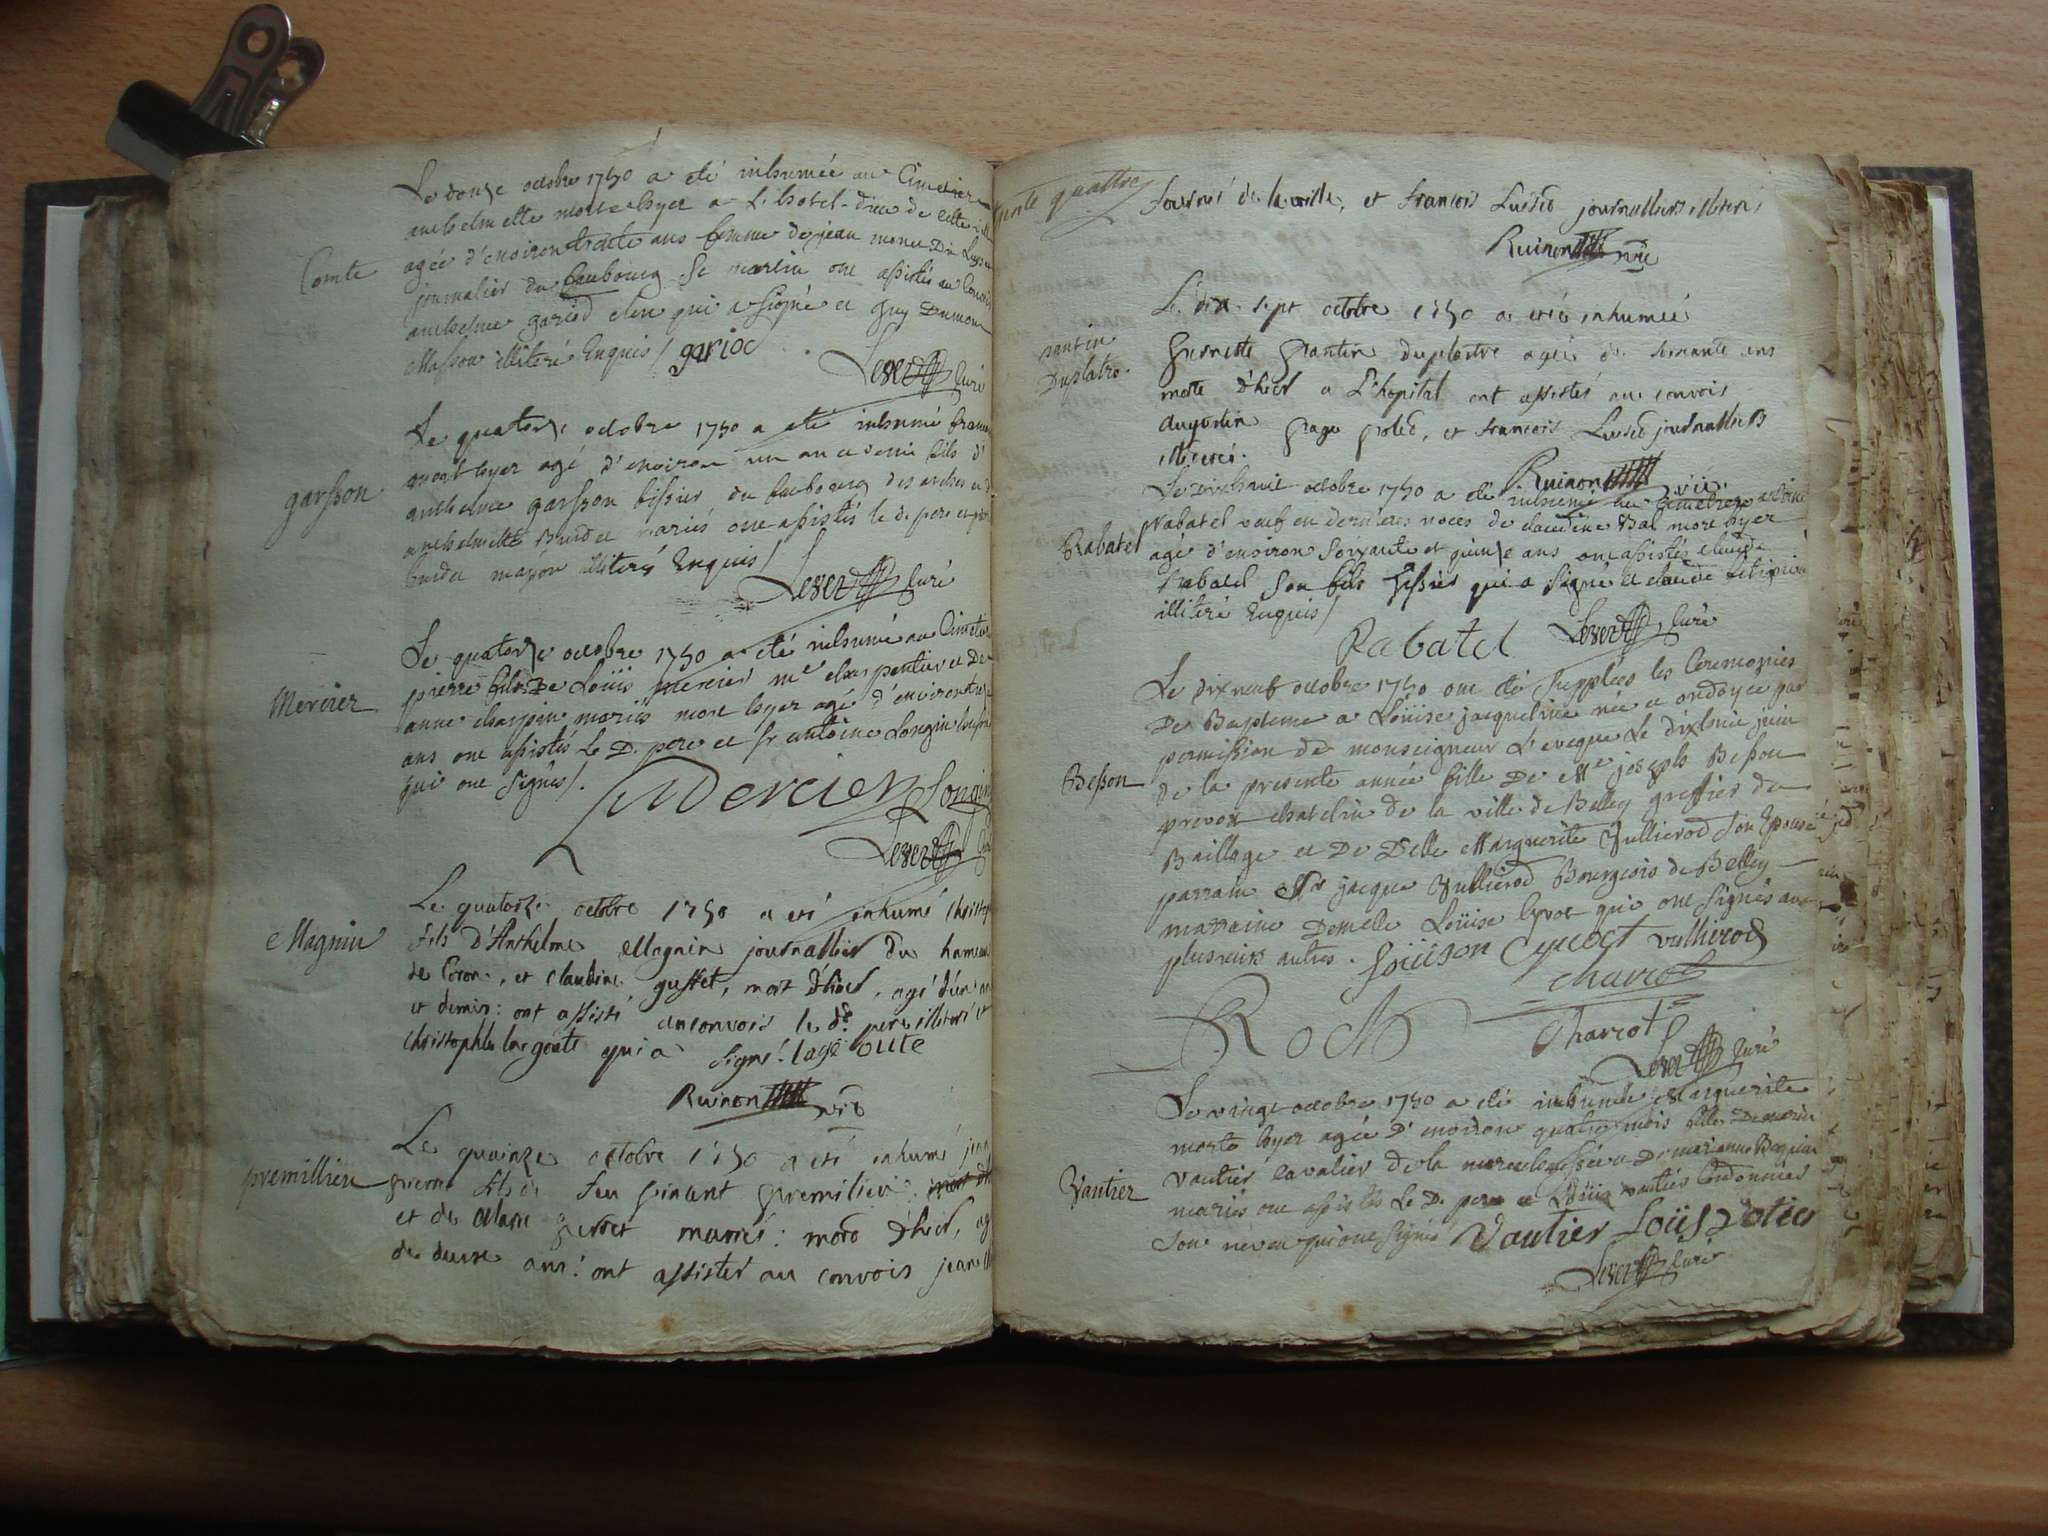 Comte
Le douze octobre 1750 a eté inhumée au Cimetiere
anthelmette morte hyer a L'hotel-dieu de cette ville
agée d'environ trente ans femme de jean
journalier du faubourg St martin ont assistés au Convoi
anthelme gariod clerc qui a signé et guy Dumon
Masson illiteré Enquis / gariod
Curé
garsson
Le quatorze octobre 1750 a eté inhumé
mort hyer agé d'environ un an et demi fils d'
anthelme garsson tissier du faubourg des
anthelmette Burdet mariés ont assistés le d. pere et
burdet maçon illiterés Enquis /
Curé
Mercier
Le quatorze octobre 1750 a eté inhumé au Cimetiere
pierre fils De Loüis mercier me charpentier et De
anne charpin mariés mort hyer agé d'environ
ans ont assistés Le D. pere et sr antoine Longin
qui ont signés /.
Mercier Longin
Magnin
Le quatorze octobre 1750 a eté inhumé Christop
fils d'Anthelme Magnin journallier du hameau
de Coron, et claudine gustet, mort d'hier, agé d'un an
et demis: ont assisté au convois le dt pere illiteré et
christophle qui a signé.
Ruinon vic
premillieu
Le quinze octobre 1750 a eté inhumé jean
pierre fils de feu vincent premilieu
et de Marie mariés: mord d'hier, ag
de douze ans: ont assister au convois jean
trente quattre
fournié de la ville, et francois journalliers illiterés
Ruinon vic
pantin
Duplatre.
Le dix sept octobre 1750 a etée inhumée
pierrette pantin duplatre agée de soixante ans
morte d'hier a L'hopital ont assistés au convois
augustin et francois journalliers
illiterés.
Ruinon vic.
Rabatel
Le Dixhuit octobre 1750 a eté inhumé au Cimetiere
Rabatel veuf en dernieres noces de claudine Bal mort hyer
agé d'environ soixante et quinze ans ont assistés claude
Rabatel son fils tissier qui a signé et claude
illiteré Enquis /
Rabatel Curé
Besson
Le dix neuf octobre 1750 ont eté supplées les Ceremonies
De Bapteme a Loüise jacqueline née et ondoyée par
permission de monseigneur L'eveque Le dixhuit juin
de la presente année fille De Me joseph Besson
prevot chatelin de la ville de Belley greffier du
Bailliage et De Delle Marguerite Vullierod son Epouse
parrain Sr jacque Vullierod Bourgeois de Belley
marraine Demelle Loüise Cyvoct qui ont signés avec
plusieurs autres. Loüison Cyvoct vullierod
Charcot
Roch Charcot
Curé
Vautier
Le vingt octobre 1750 a eté inhumée Marguerite
morte hyer agée D'environ quatre mois fille De
vautier cavalier de la marechaussée et De marianne
mariés ont assistés Le D. pere et Loüis vautier Cordonnier
son neveu qui ont signés Vautier Loüis votier
Curé